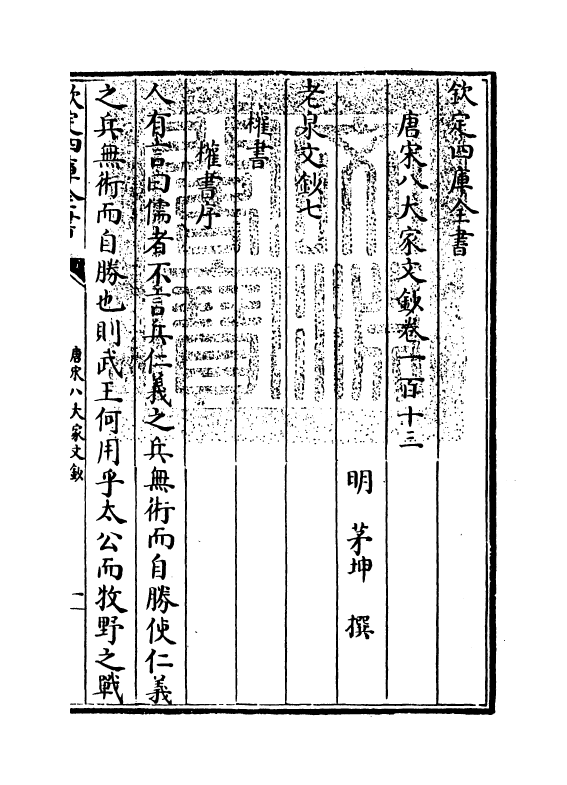 欽定四庫全書
唐宋八大家文鈔卷一百十三
明 茅坤 撰
老泉文鈔七
權書
權書序
人有言曰儒者不言兵仁義之兵無術而自勝使仁義
之兵無術而自勝也則武王何用乎太公而牧野之戰
欽定四庫全書
唐宋八大家文鈔